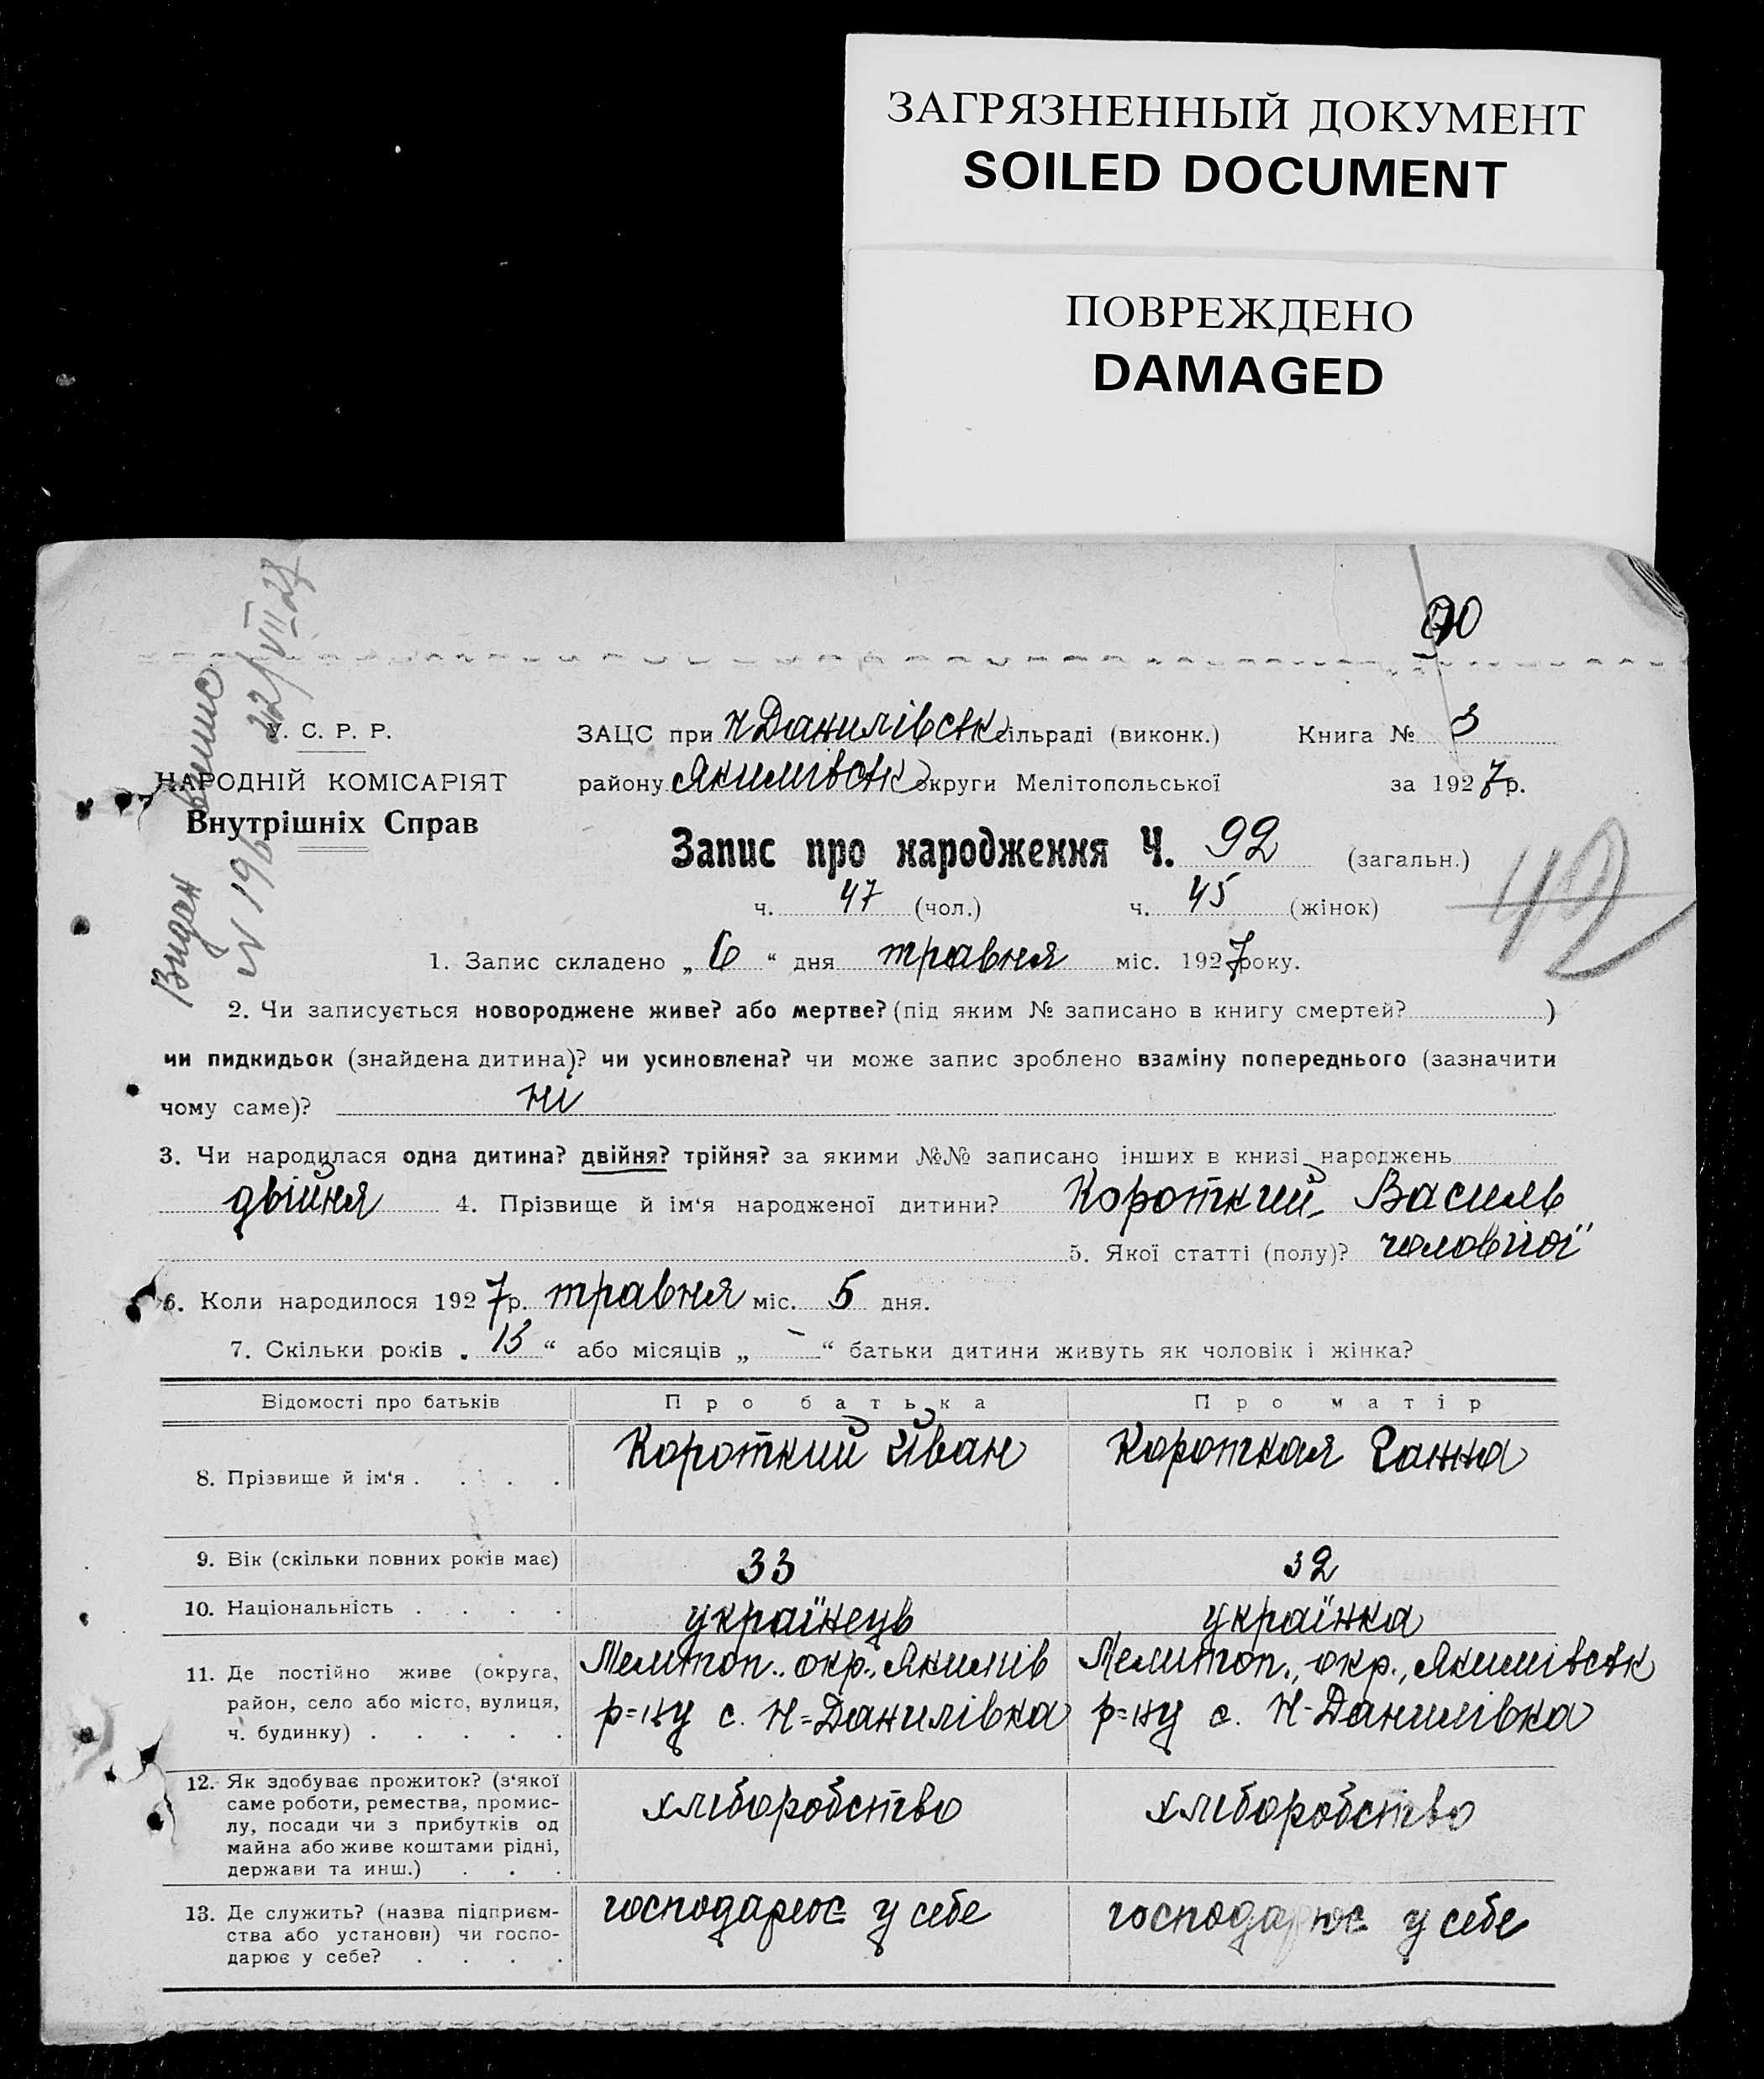 ЗАГРЯЗНЕННЫЙ ДОКУМЕНТ
SOILED DOCUMENT
ПОВРЕЖДЕНО
DAMAGED
Видан випис
N 196 22/VII 27
У. С. Р. Р.
НАРОДНІЙ КОМІСАРІЯТ
Внутрішніх Справ
ЗАЦС при Н Данилівськ сільраді (виконк.) Книга № 3
району Якимівськ округи Мелітопольської за 1927 р.
Запис про народження Ч. 92 (загальн.)
ч. 47 (чол.) ч. 45 (жінок)
42
1. Запис складено „ 6 “ дня травня міс. 1927 року.
2. Чи записується новороджене живе? або мертве? (під яким № записано в книгу смертей? )
чи пидкидьок (знайдена дитина)? чи усиновлена? чи може запис зроблено взаміну попереднього (зазначити
чому саме)? ні
3. Чи народилася одна дитина? двійня? трійня? за якими №№ записано інших в книзі народжень
двійня 4. Прізвище й ім‘я народженої дитини? Короткий Василь
5. Якої статті (полу)? чоловічої
6. Коли народилося 1927 р. травня міс. 5 дня.
7. Скільки років „ 13 “ або місяців „ - “ батьки дитини живуть як чоловік і жінка?
Відомості про батьків Про батька Про матір
8. Прізвище й ім‘я . . . . . Короткий Йван Короткая Ганна
9. Вік (скільки повних років має) 33 32
10. Національність . . . . українець українка
11. Де постійно живе (округа, Мелитоп. окр., Якимів Мелитоп., окр., Якимівськ
район, село або місто, вулиця, р=ну с. Н=Данилівка р=ну с. Н-Данилівка
ч. будинку) . . . . .
12. Як здобуває прожиток? (з‘якої
саме роботи, ремества, промис- хліборобство хліборобство
лу, посади чи з прибутків од
майна або живе коштами рідні,
держави та инш.) . . .
13. Де служить? (назва підприєм- господарює у себе господарює у себе
ства або установи) чи госпо-
дарює у себе? . . . .